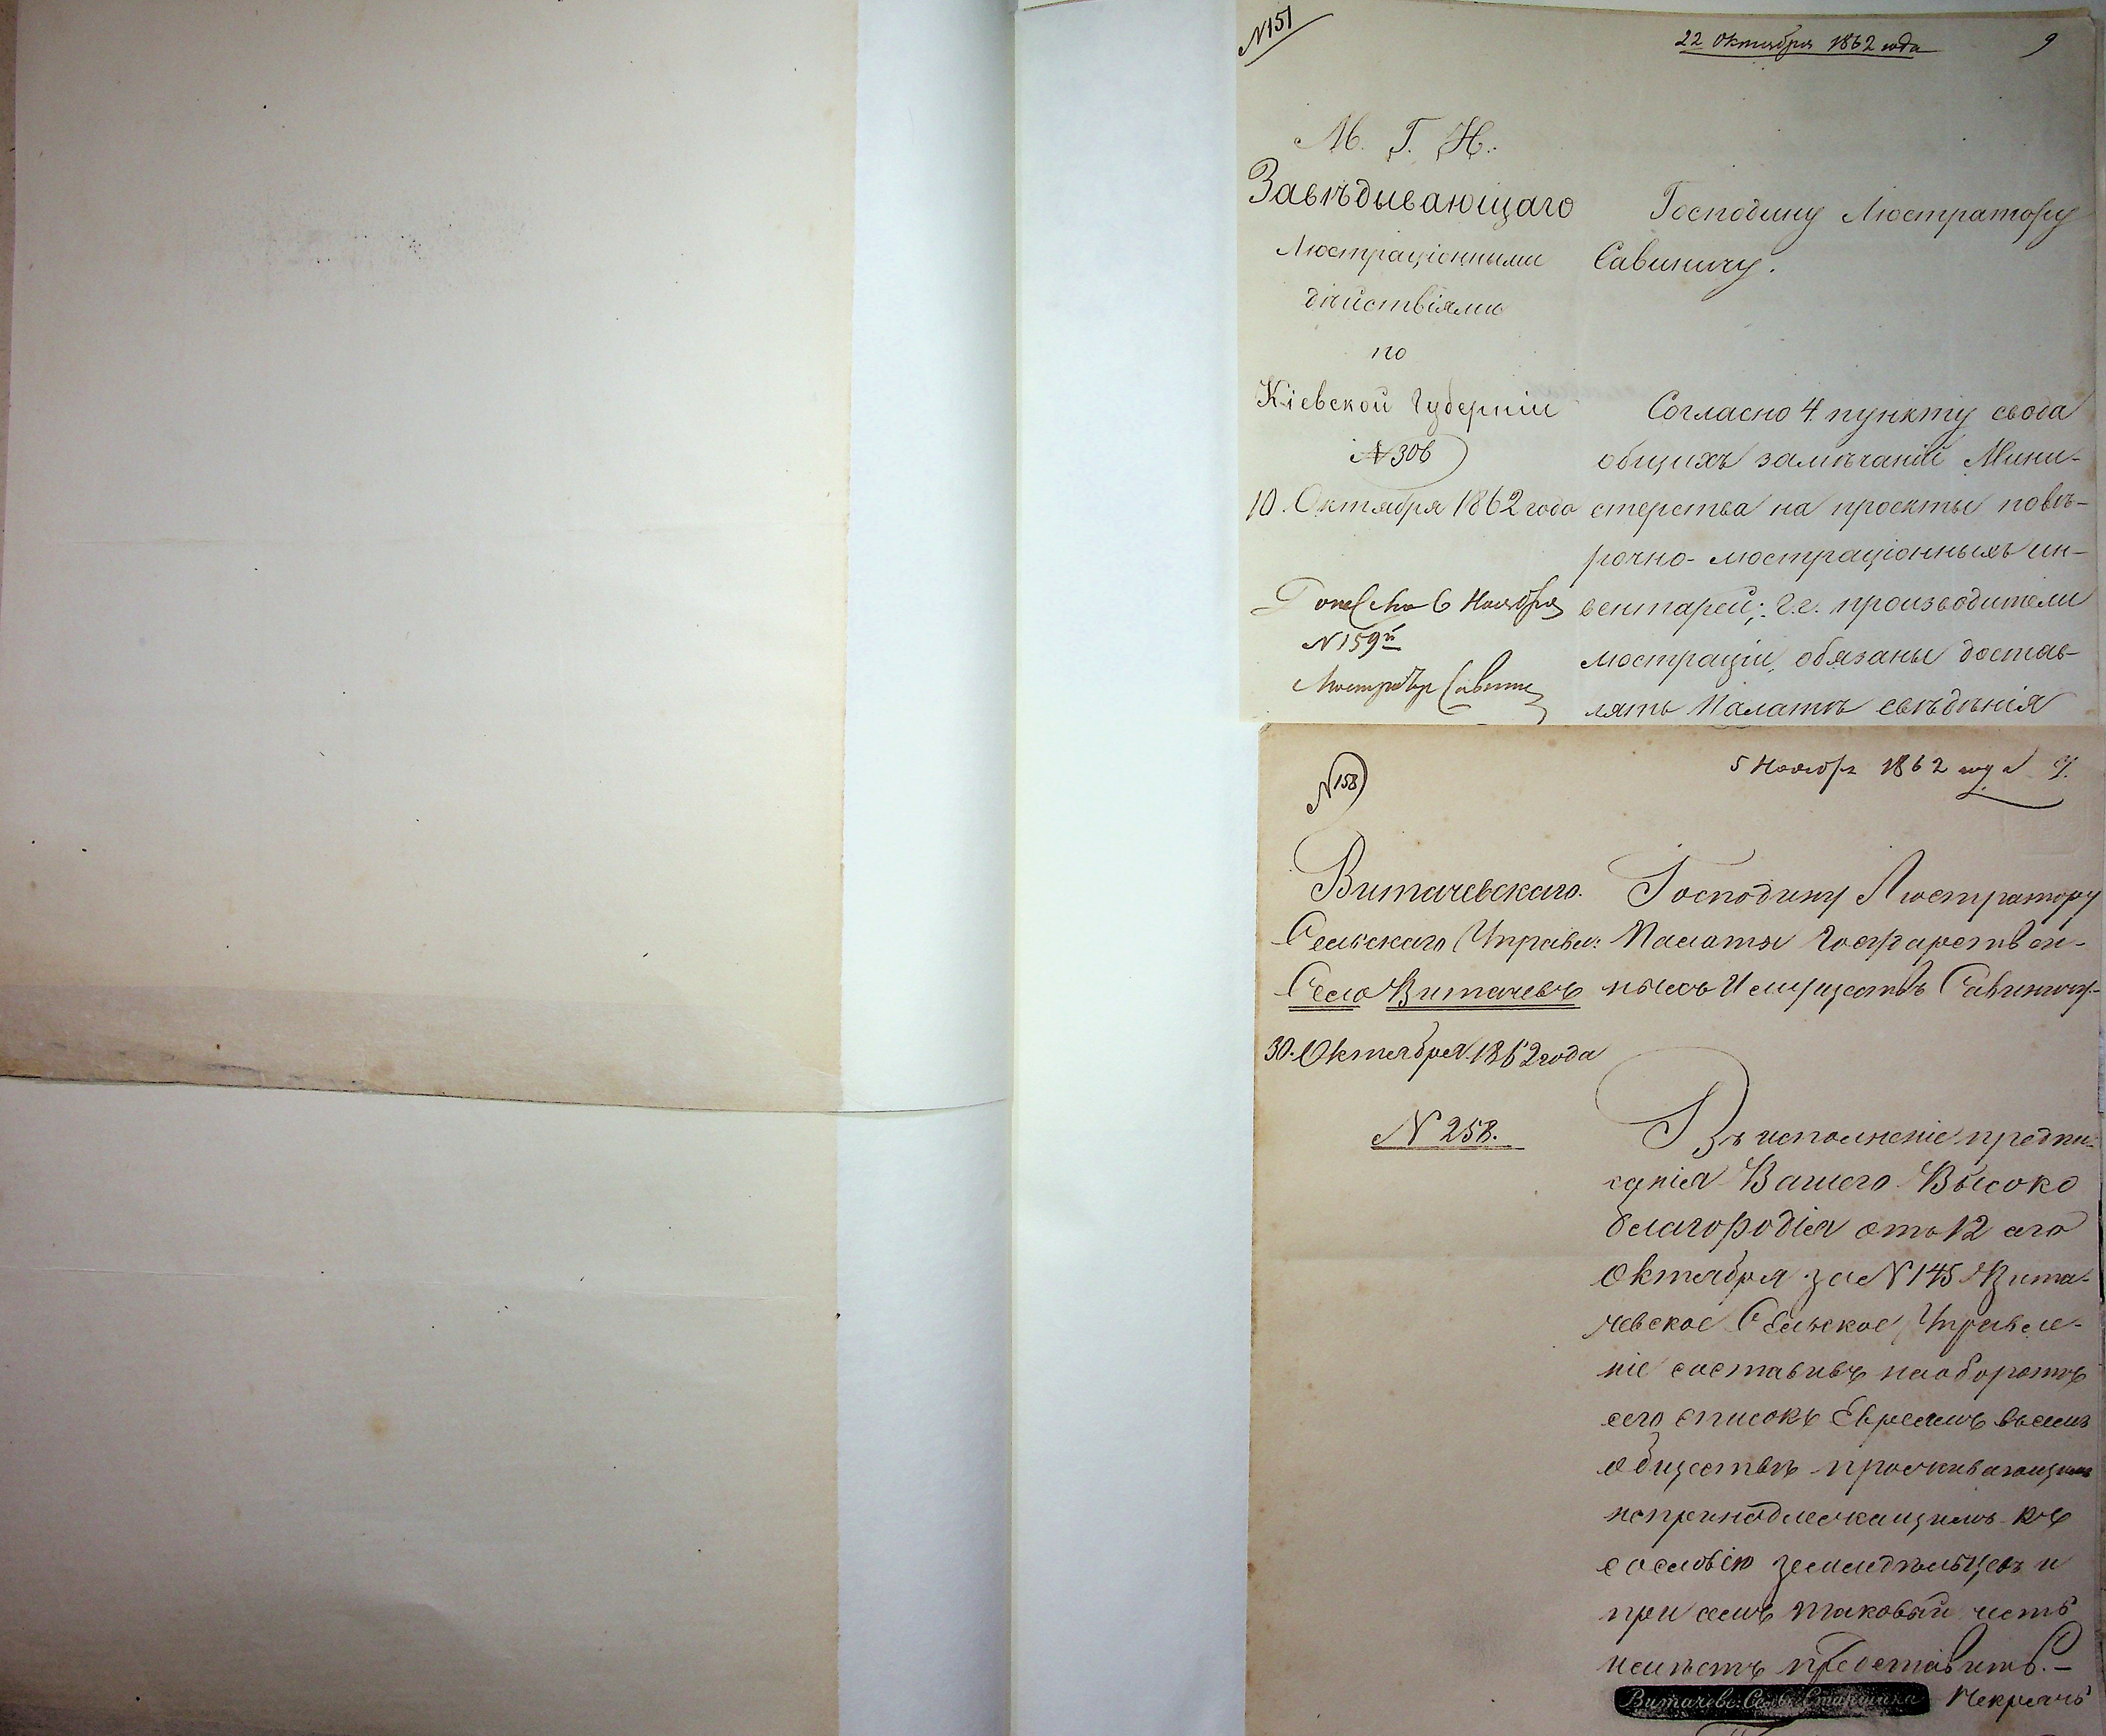 N151
22 Октября 1862 года
9
М. Г. И.
Завѣдывающаго
Люстраціонными
дѣйствіями
по
Кіевской Губерніи
N 306
10. Октября 1862 года
6 Ноября
N 159й
Люстраторъ Савинич
Господину Люстратору
Савиничу.
Согласно 4 пункту свода
общихъ замѣчаній Мини-
стерства на проекты повѣ-
рочно-люстраціонныхъ ин-
вентарей; г.г. производители
люстраціи, обязаны достав-
лять Палатѣ свѣдѣнія
N158
5 Ноября 1862 года
Витачевскаго.
Сельскаго Управл:
Село Витачевъ
30. Октября 1862 года
N 258.
Господину Люстратору
Палаты Государствен-
ныхъ Имуществъ Савиничу-
Въ исполненіе предпи-
санія Вашего Высоко
благородія отъ 12 аго
Октября за N 145 Вита-
чевское Сельское Управле-
ніе составивъ наоборотѣ
сего списокъ Евреямъ въ семъ
обществѣ проживающимъ
непринадлежащимъ къ
сословію земледѣльцевъ и
при семъ таковый честь
имѣетъ представить.-
Витачевс: Сельск: Старшина